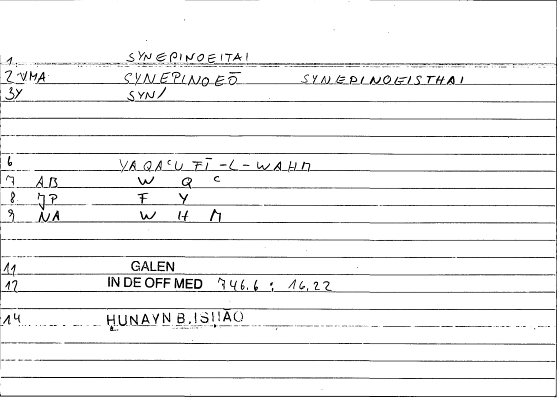 1. SYNEPINOEITAI
2 VMA SYNEPINOEŌ SYNEPINOEISTHAI
3Y SYN/
6 YAQAᶜU FĪ-L-WAHM
7 AB W Q ᶜ
8 JP F Y
9 NA W H M
11 GALEN
12 IN DE OFF MED 746.6 : 16,22
14 ḤUNAYN B.ISḤĀQ